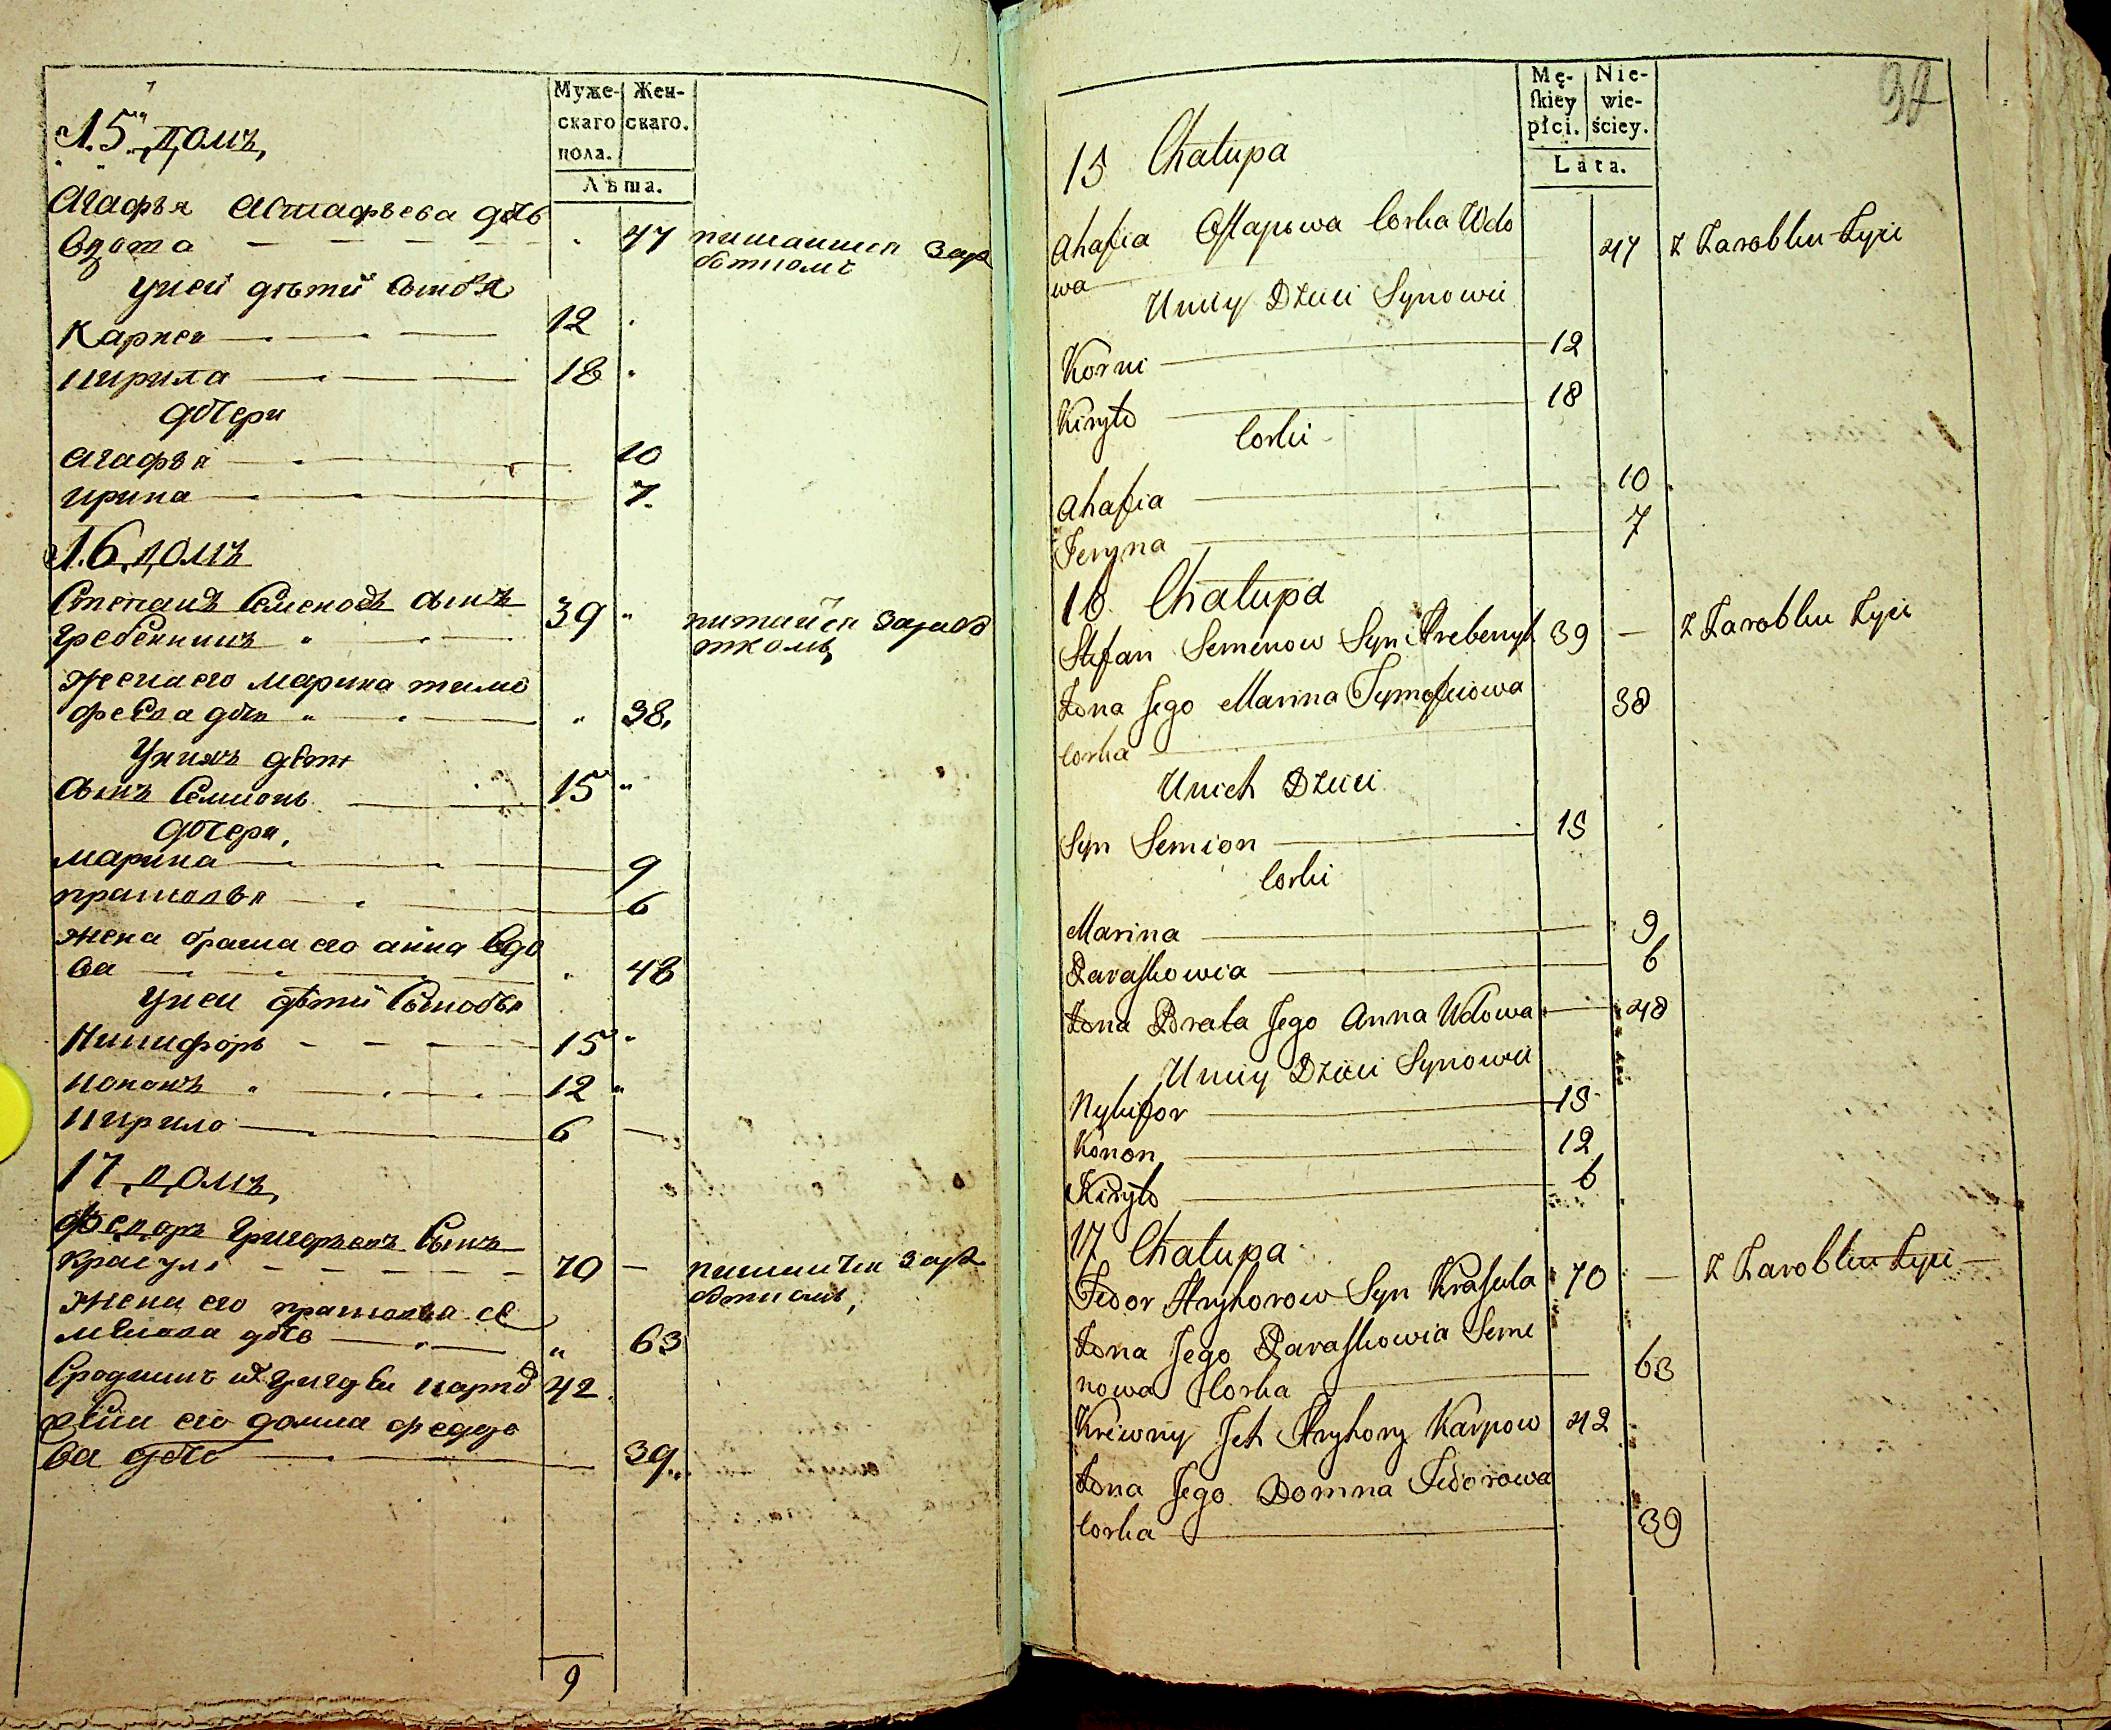 Муже-
скаго
пола.
Жен-
скаго.
Лѣта.
15 домъ,
Агафья Астафьева дочь
Вдова 47 питаится зара
боткомъ
у ней дѣтй сыновья
Карней 12
Кирила 18
дочери
Агафья 10
Ирина 7.
16 домъ
Степанъ Семеновъ сынъ 39 питаится зарабо
Гребенникъ ткомъ
жена его марина тимо
феева дочь 38.
У нихъ дети
сынъ Семионъ 15
дочери,
марина 9
прасковья 6
жена брата его анна вдо
ва 48
у неи дѣтй Сыновья
Никифоръ 15
кононъ 12
Кирило 6
17 домъ,
Федоръ Григорьевъ Сынъ
Красуля 70 питаится зара
боткомъ,
жена его прасковья се
менова дочь 63
Сродникъ ихъ григорѣи карпов 42
жена его домна федоро
ва дочь 39.
9
Mę-
skiey
płci.
Nie-
wie-
ściey.
Lata.
97
15 Chałupa
Ahafia Ostapowa Corka Wdo 47 z Zarobku żyie
wa
U niey Dzieci Synowie
Korni 12
Kiryło 18
Corki
Ahafia 10
Jeryna 7
16 Chałupa
Stefan Semenow Syn Hrebenyk 39 — z Zarobku żyie
Żona Jego Marina Tymofiiowa 38
Corka
U nich Dzieci
Syn Semion 15
Corki
Marina 9
Paraskowia 6
Żona Brata Jego Anna Wdowa 48
U niey Dzieci Synowie
Nykifor 15
Konon 12
Kiryło 6
17 Chałupa
Fedor Hryhorow Syn Krasula 70 — z Zarobku żyie
Żona Jego Paraskowia Seme
nowa Corka 63
Krewny Jch Hryhory Karpow 42
Żona Jego Domna Fedorowa
Corka 39